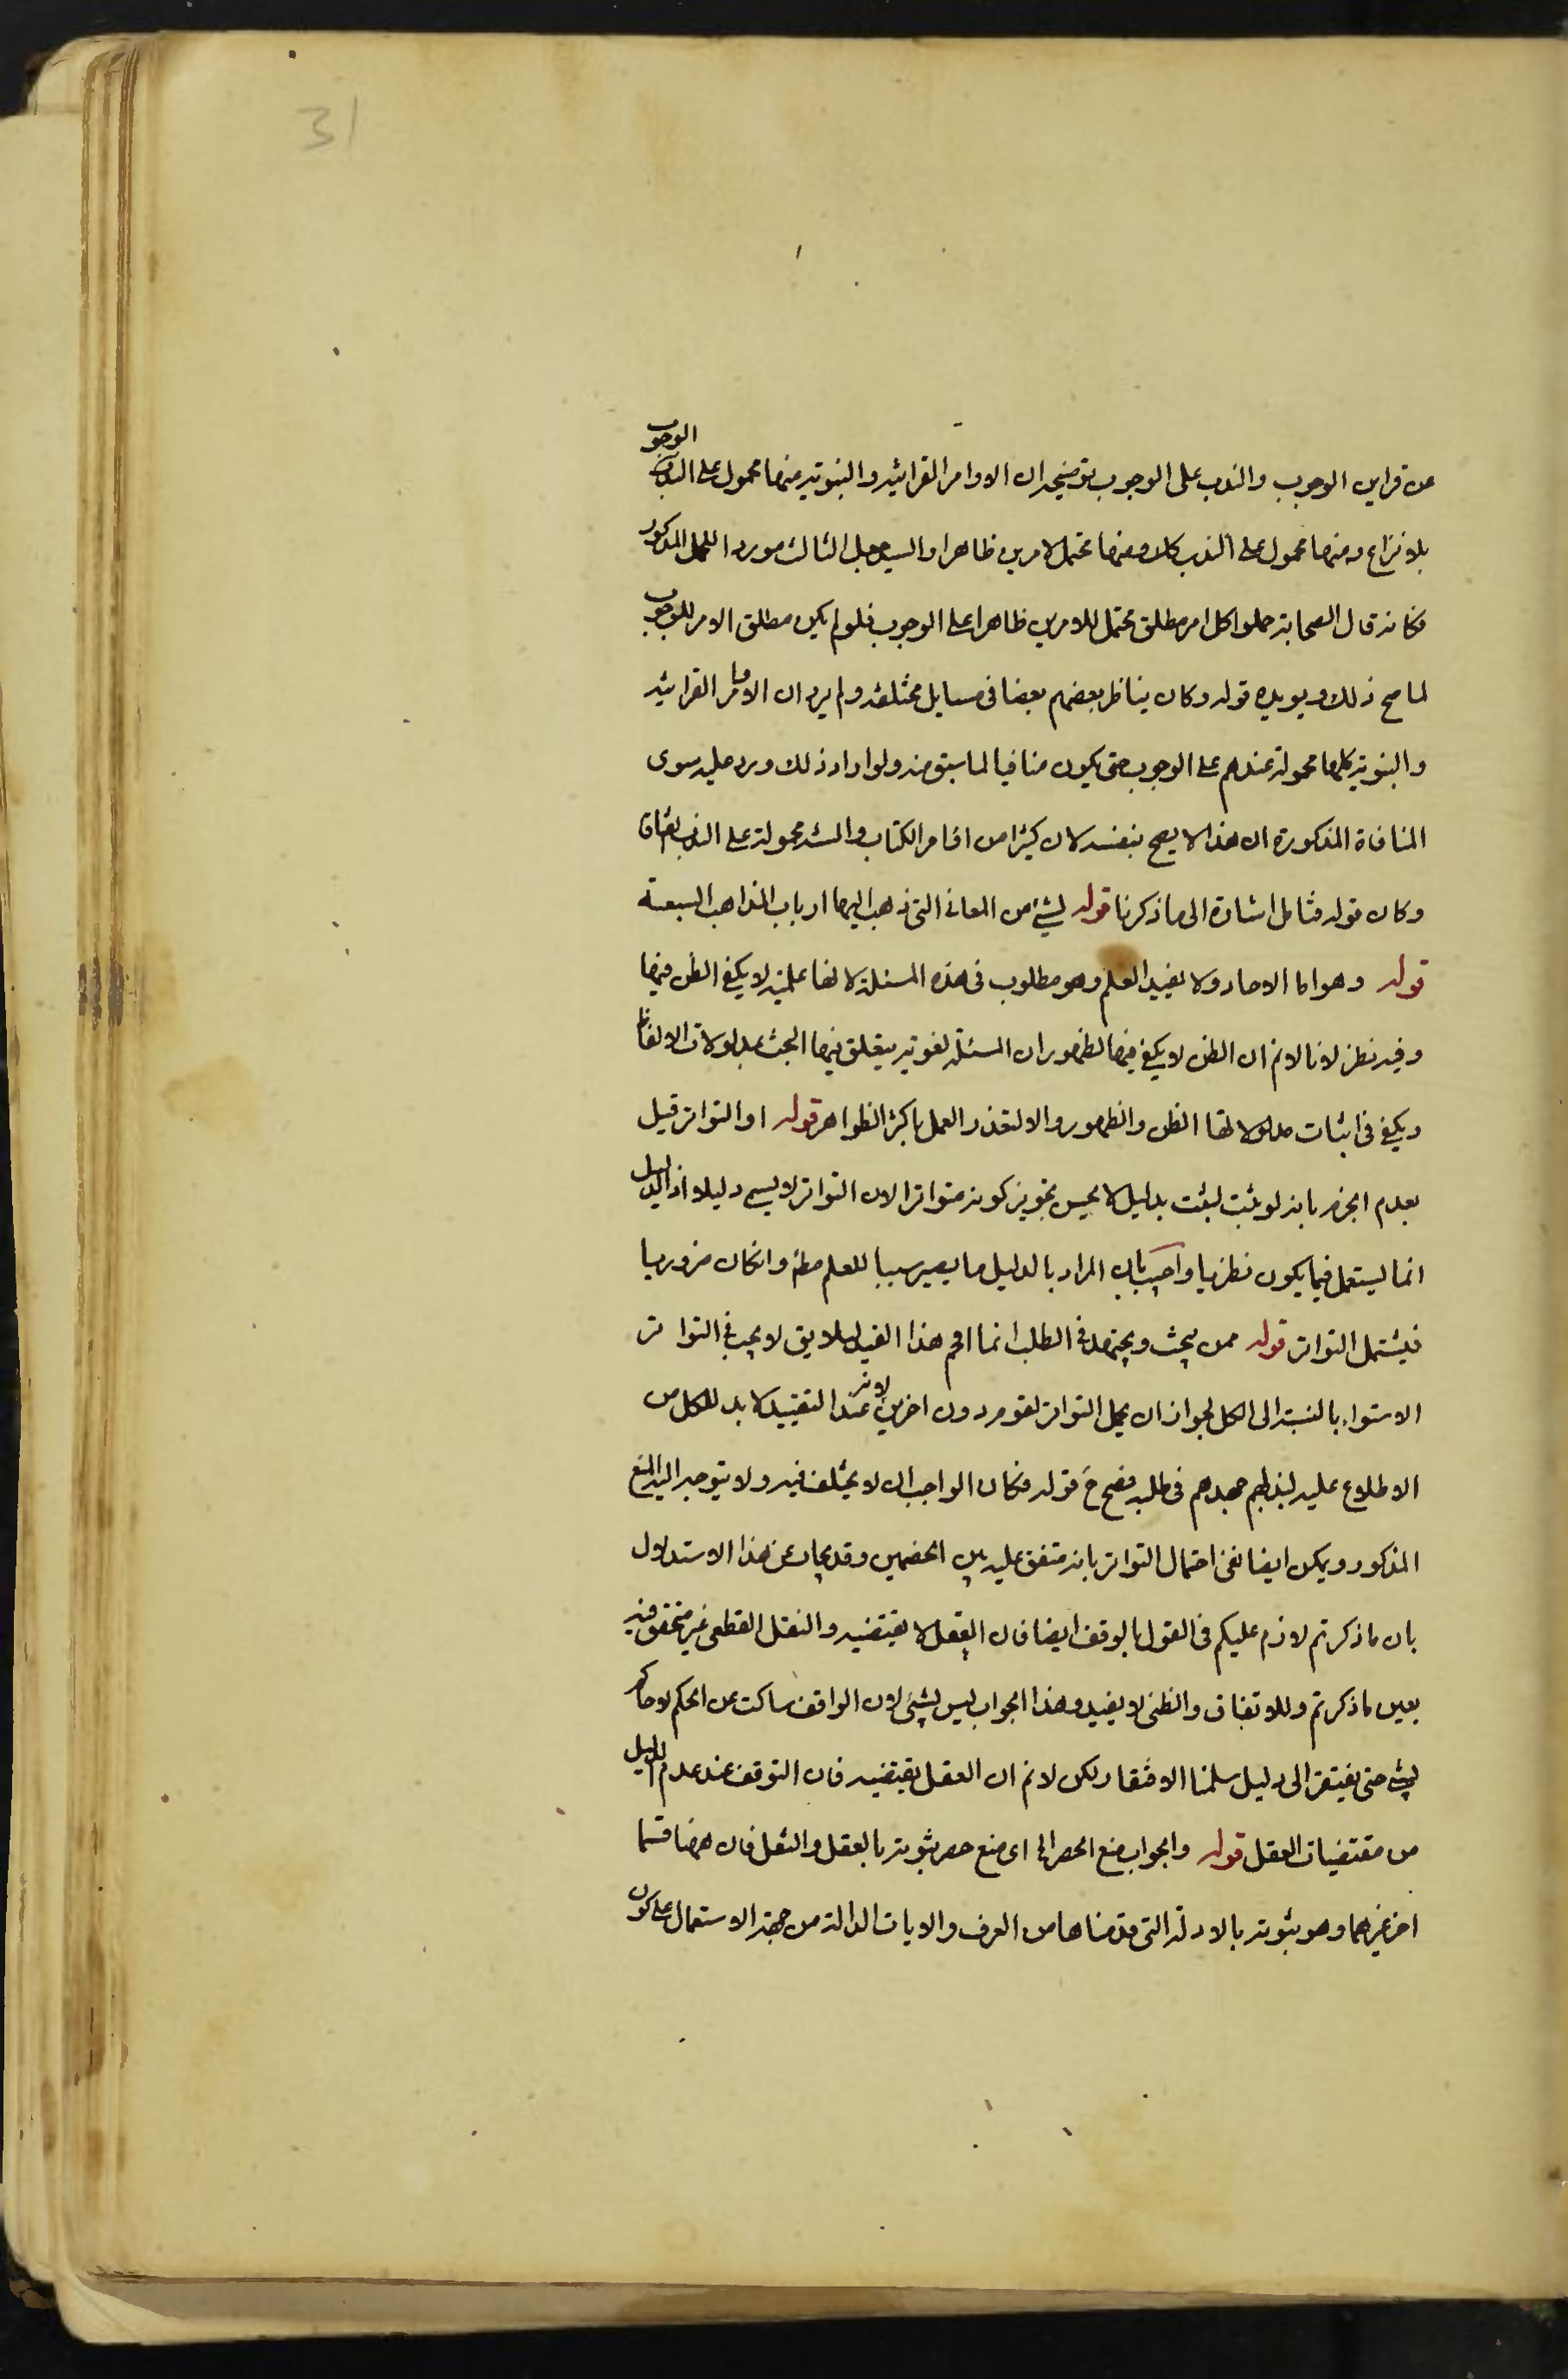 31
عن قراين الوجوب والندب على الوجوب توضيحه ان الاوامر القرانيه والنبوية منها محمول على الوجوب
بلا نزاع ومنها محمول على الندب كك ومنها محتمل لامرين ظاهرا والسيد جعل الثالث موردا للحمل المذكور
فكانه قال الصحابة حملوا كل امر مطلق محتمل للامرين ظاهرا على الوجوب فلو لم يكن مطلق الامر للوجوب
لما صح ذلك ويويده قوله وكان يناظر بعضهم بعضا في مسايل مختلفه ولم يرد ان الاوامر القرانيه
والنبوية كلها محمولة عندهم على الوجوب حتى يكون منافيا لما سبق منه ولو اراد ذلك ورد عليه سوى
المنافاة المذكورة ان هذا لا يصح بنفسه لان كثيرا من اوامر الكتاب والسنه محمولة على الندب اتفاقا
وكان قوله فتامل اشارة الى ما ذكرنا قوله لشئ من المعاني التي ذهب اليها ارباب المذاهب السبعة
قوله وهو اما الاحاد ولا يفيد العلم وهو مطلوب في هذه المسئلة لانها علمية لا يكفي الظن فيها
وفيه نظر لانا لانم ان الظن لا يكفي فيها لظهور ان المسئلة لغوية يتعلق فيها البحث بمدلولات الالفاظ
ويكفي في اثبات مدلولاتها الظن والظهور والا لتعذر العمل باكثر الظواهر قوله او التواتر قيل
بعدم الجزم بانه لو ثبت لثبت بدليل لا يحسن تجويز كونه متواترا لان التواتر لا يسمى دليلا اذ الدليل
انما يستعمل فيما يكون نظريا واجيب بان المراد بالدليل ما يصير سببا للعلم مطلقا وان كان ضروريا
فيشتمل التواتر قوله ممن يبحث ويجتهد في الطلب انما اقحم هذا القيد لئلا يق لا يجب في التواتر
الاستواء بالنسبة الى الكل لجواز ان يحصل التواتر لقوم دون اخرين لانه عند التقييد لا بد للكل من
الاطلاع عليه لبذلهم جهدهم في طلبه فصح ح قوله فكان الواجب ان لا يختلف فيه ولا يتوجه اليه المنع
المذكور ويمكن ايضا نفي احتمال التواتر بانه متفق عليه بين الخصمين وقد يجاب عن هذا الاستدلال
بان ما ذكرتم لازم عليكم في القول بالوقف ايضا فان العقل لا يقتضيه والنقل القطعي غير متحقق فيه
بعين ما ذكرتم وللاتفاق والظني لا يفيد وهذا الجواب ليس بشئ لان الواقف ساكت عن الحكم لا حاكم
بشئ حتى يفتقر الى دليل سلمنا الافتقار لكن لانم ان العقل لا يقتضيه فان التوقف عند عدم الدليل
من مقتضيات العقل قوله والجواب منع الحصر الخ اى منع حصر ثبوته بالعقل والنقل فان ههنا قسما
اخر غيرهما وهو ثبوته بالادلة التي قدمناها من العرف والايات الدالة من جهة الاستعمال على كون